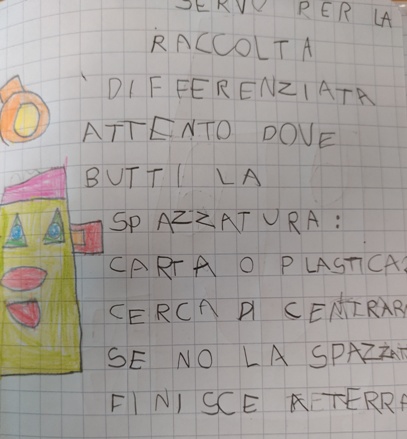 SERVO PER LA
RACCOLTA
DIFFERENZIATA
ATTENTO DOVE
BUTTI LA
SPAZZATURA:
CARTA O PLASTICA?
CERCA DI CENTRAR
SE NO LA SPAZZAT
FINISCE A TERRA